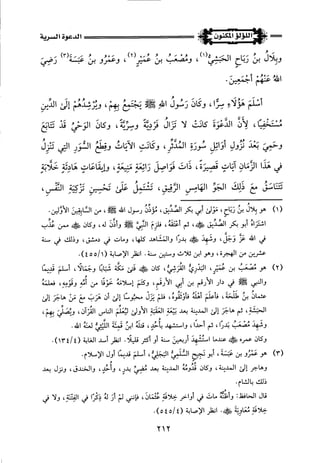 اللؤلؤ المكنون
الدعوة السرية
وبلال بن رباح الحبشي(١)، ومصعب بن عمير(٢)، وعمرو بن عبسة(٣) رضي
الله عنهم أجمعين.
أسلم هؤلاء سرا، وكان رسول الله ﷺ يجتمع بهم، ويرشدهم إلى الدين
مستخفيا، لأن الدعوة كانت لا تزال فردية وسرية، وكان الوحي قد تتابع
وحمي بعد نزول أوائل سورة المدثر، وكانت الآيات وقطع السور التي تنزل
في هذا الزمان آيات قصيرة، ذات فواصل رائعة منيعة، وإيقاعات هادئة خلابة
تتناسق مع ذلك الجو الهامس الرقيق، تشتمل على تحسين تزكية النفس،
(١) هو بلال بن رباح، مولى أبي بكر الصديق، مؤذن رسول الله ﷺ، من السابقين الأولين.
اشتراه أبو بكر الصديق، ثم أعتقه، فلزم النبي ﷺ وأذن له، وكان ممن عذب
في الله عز وجل، وشهد بدرا والمشاهد كلها، ومات في دمشق، وذلك في سنة
عشرين من الهجرة، وهو ابن ثلاث وستين سنة. انظر الإصابة (١/٤٥٥).
(٢) هو مصعب بن عمير، العبدري القرشي، كان فتى مكة شبابا وجمالا، أسلم قديما
والنبي ﷺ في دار الأرقم بن أبي الأرقم، وكتم إسلامه خوفا من أمه وقومه، فعلمه
عثمان بن طلحة، فأعلم أهله فأوثقوه، فلم يزل محبوسا إلى أن هرب مع من هاجر إلى
الحبشة، ثم هاجر إلى المدينة بعد بيعة العقبة الأولى ليعلم الناس القرآن، ويصلي بهم،
وشهد مصعب بدرا، ثم أحدا، واستشهد بأحد، قتله ابن قمئة الليثي لعنه الله.
وكان عمره عندما استشهد أربعين سنة أو أكثر قليلا. انظر أسد الغابة (٤/١٣٤).
(٣) هو عمرو بن عبسة، أبو نجيح السلمي البجلي، أسلم قديما أول الإسلام.
وهاجر إلى المدينة، وكان قدومه المدينة بعد مضي بدر، وأحد، والخندق، ونزل بعد
ذلك بالشام.
قال الحافظ: وأظنه مات في أواخر خلافة عثمان، فإنني لم أر له ذكرا في الفتنة، ولا في
خلافة معاوية. انظر الإصابة (٤/٥٤٥).
٢١٢